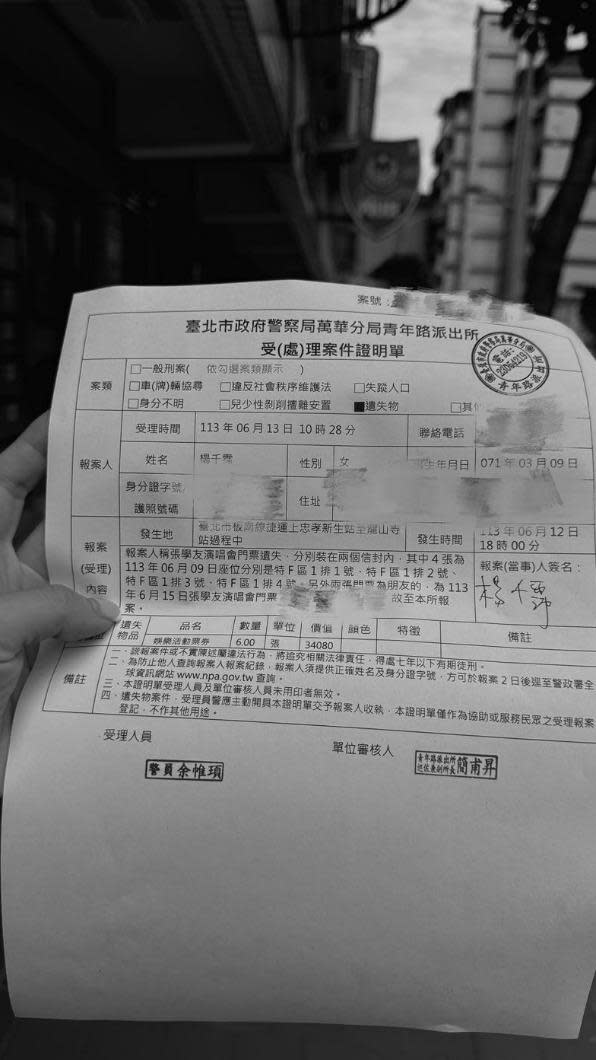 案號：
臺北市政府警察局萬華分局青年路派出所
受(處)理案件證明單
案類
□一般刑案( 依勾選案類顯示 )
□車(牌)輛協尋 □違反社會秩序維護法 □失蹤人口
□身分不明 □兒少性剝削擅離安置 ■遺失物 □其他
報案人
受理時間 113 年 06 月 13 日 10 時 28 分 聯絡電話
姓名 楊千霈 性別 女 出生年月日 071 年 03 月 09 日
身分證字號/
護照號碼
住址
報案(受理)內容
發生地 臺北市板南線捷運上忠孝新生站至龍山寺站過程中 發生時間 113 年 06 月 12 日 18 時 00 分
報案人稱張學友演唱會門票遺失，分別裝在兩個信封內，其中 4 張為
113 年 06 月 09 日座位分別是特 F 區 1 排 1 號、特 F 區 1 排 2 號、
特 F 區 1 排 3 號、特 F 區 1 排 4 號。另外兩張門票為朋友的，為 113
年 6 月 15 日張學友演唱會門票 故至本所報
案。
報案(當事)人簽名：
楊千霈
遺失物品 品名 數量 單位 價值 顏色 特徵 備註
娛樂活動票券 6.00 張 34080
備註
一、謊報案件或不實陳述屬違法行為，將追究相關法律責任，得處七年以下有期徒刑。
二、為防止他人查詢報案人報案紀錄，報案人須提供正確姓名及身分證字號，方可於報案 2 日後逕至警政署全
球資訊網站 www.npa.gov.tw 查詢。
三、本證明單受理人員及單位審核人員未用印者無效。
四、遺失物案件，受理員警應主動開具本證明單交予報案人收執，本證明單僅作為協助或服務民眾之受理報案
登記，不作其他用途。
受理人員 單位審核人
警員余惟頊
青年路派出所
簡甫昇